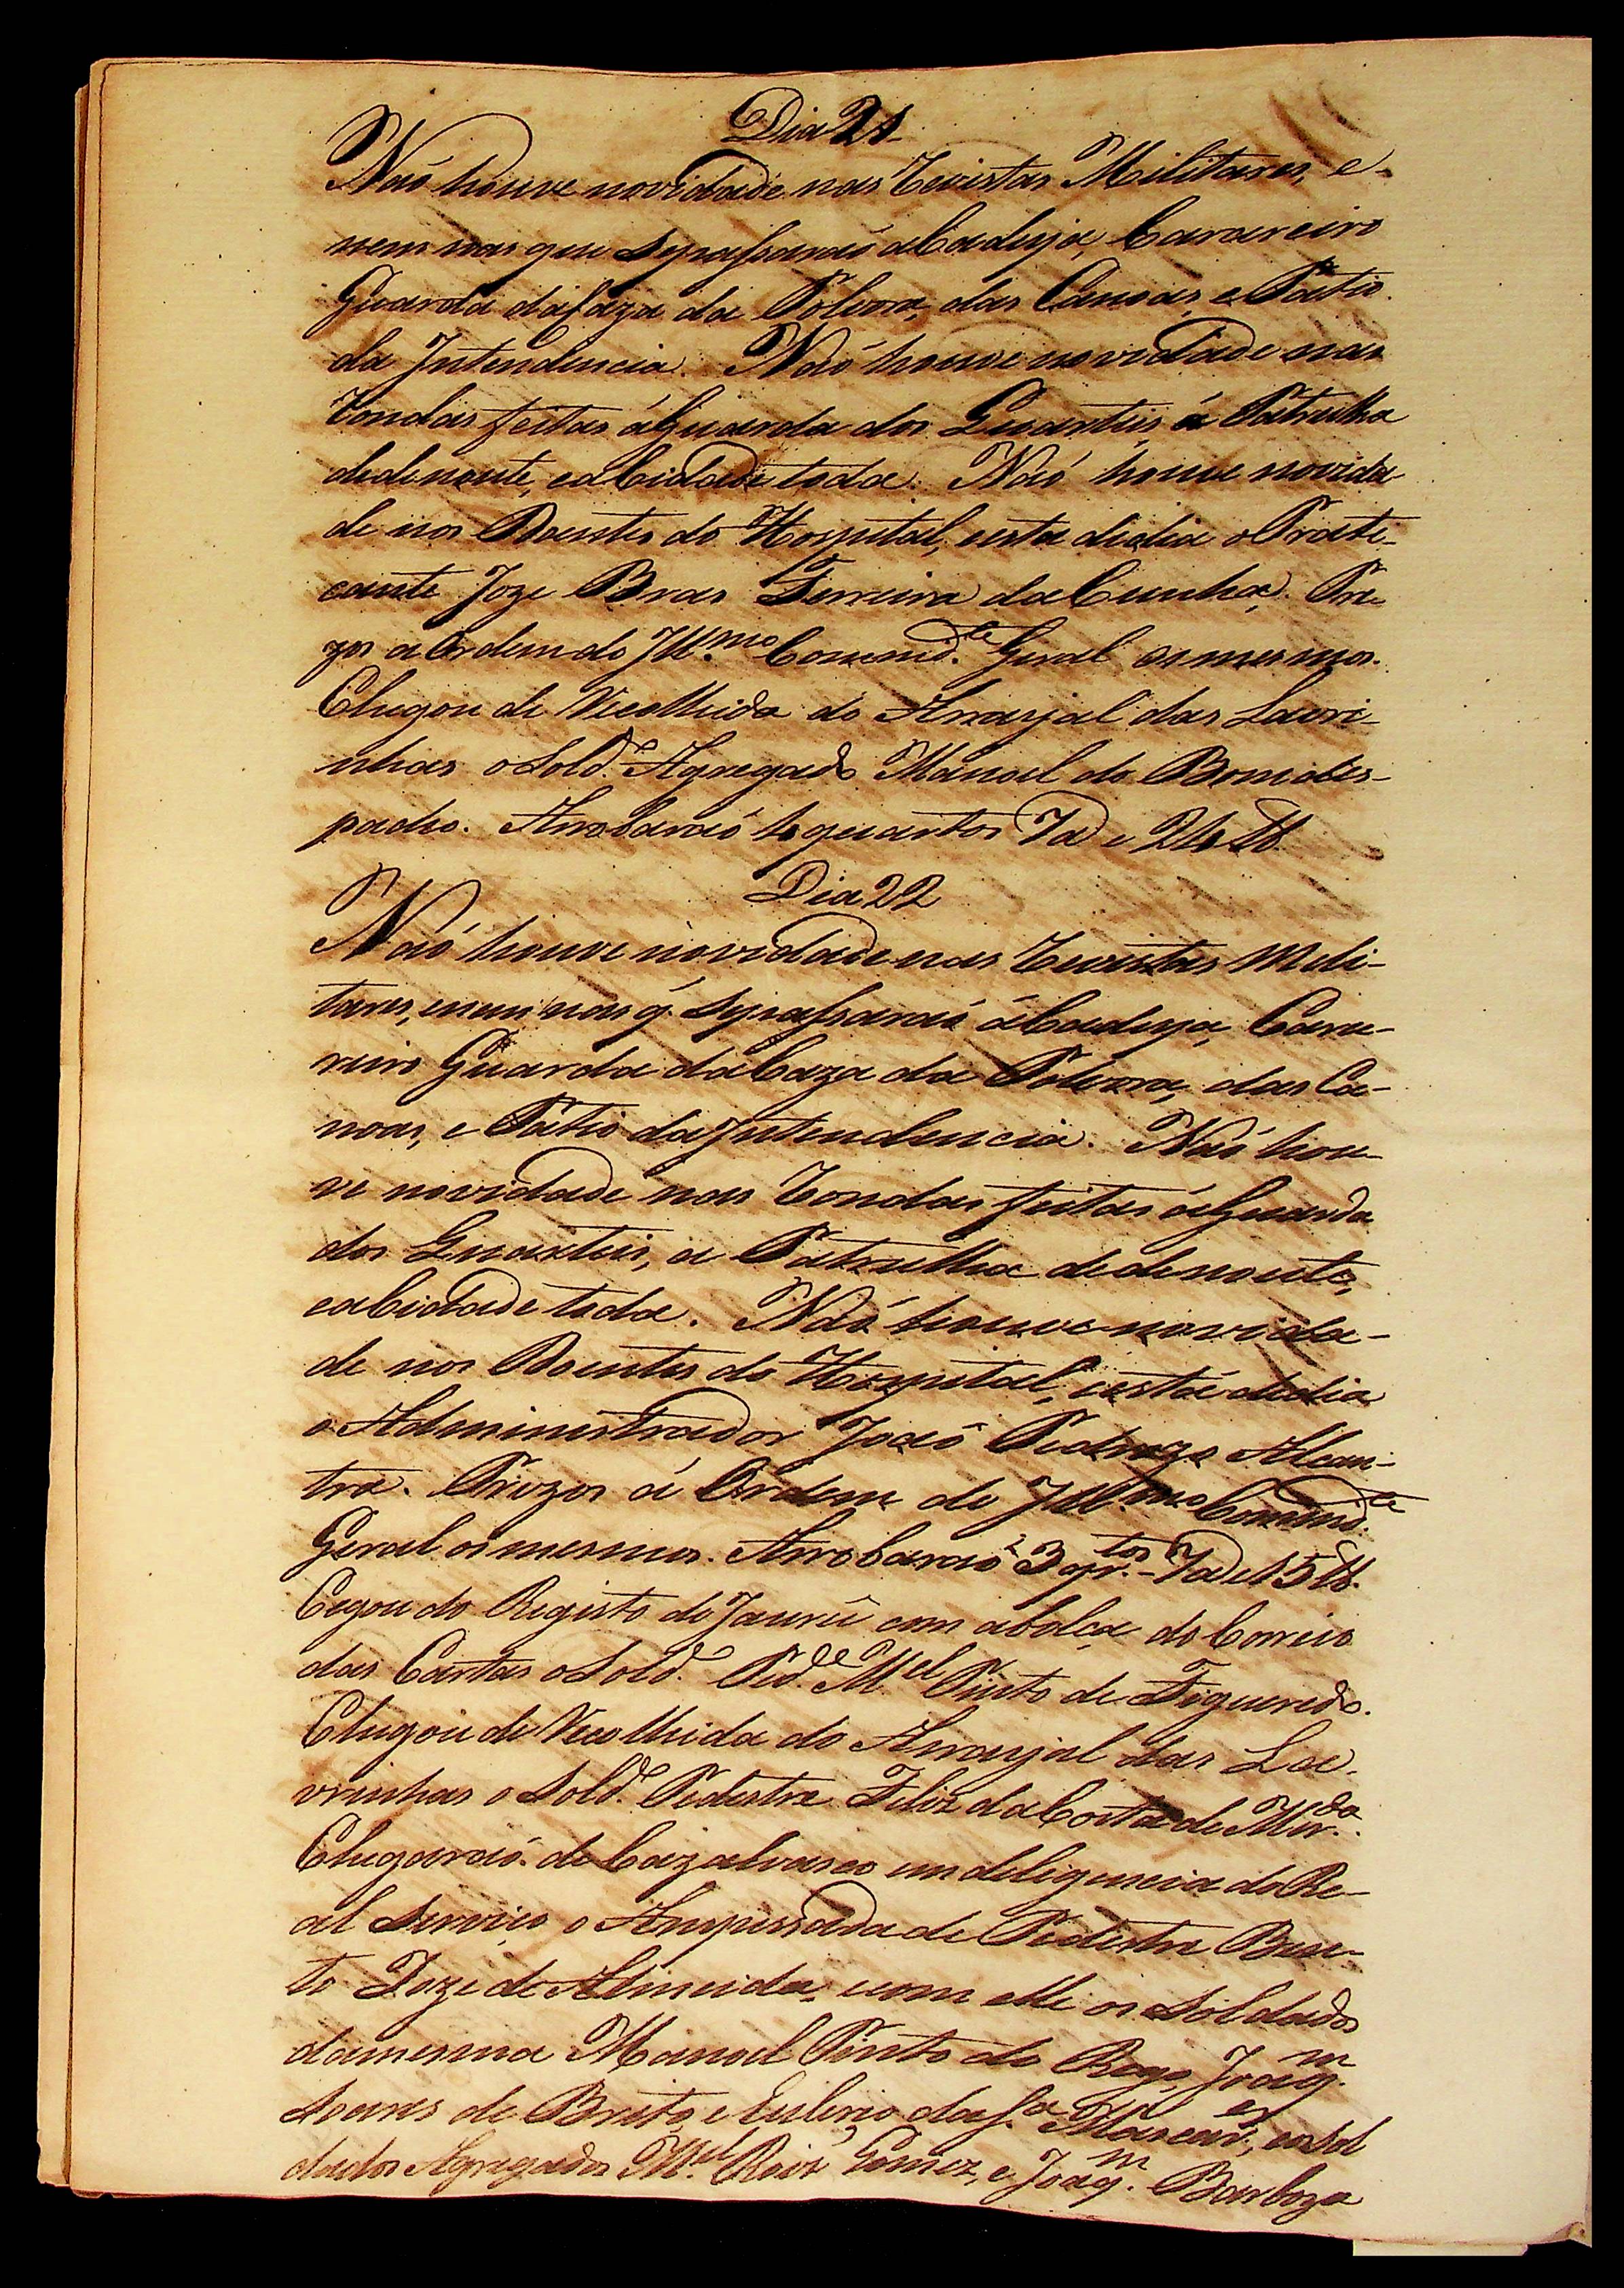 Dia 21
Naõ houve novidade nas Revistas Militares, e
nem nas que sepassaraõ aCadeya, Carcereiro
Guarda daCaza da Polvora, das Canoas, e Patio
da Intendencia. Naõ houve novidade nas
Rondas feitas áGuarda dos Quarteis á Patrulha
dedenoute, eaCidade toda. Naõ houve novida-
de nos Doentes do Hospital, eesta dedia oPrati-
cante Joze Bras Ferreira daCunha. Pre-
zos aOrdem do Ill.mo Comend.te Geral os mesmos.
Chegou de Recolhida do Arrayal das Lavri-
nhas oSold.o Agregado Manoel do Bomdes-
pacho. Arrobaraõ 4 quartos 7@ e 24 lb.
Dia 22
Naõ houve novidade nas Revistas Mili-
tares, enem nas q. sepassaraõ áCadeya, Carce-
reiro Guarda daCaza da Polvora, das Ca-
noas, e Patio da Intendencia. Naõ hou-
ve novidade nas Rondas feitas áGuarda
dos Quarteis, a Patrulha dedenoute,
eaCidade toda. Naõ houve novida-
de nos Doentes do Hospital, eestá dedia
o Administrador Joaõ Pedrozo Alcan-
tra. Prezos á Ordem do Ill.mo Comend.te
Geral os mesmos. Arrobaraõ 3 qr.tos - 7@ e 15 lb.
Cegou do Registo do Jaurú com abolça do Correio
das Cartas oSold.o Ped.e M.el Pinto de Figueredo.
Chegou de Recolhida do Arrayal das La-
vrinhas o Sold.o Pedestre Feliz daCosta de Mir.da.
Chegaraõ de Cazalvasco em deligencia do Re-
al Serviço o Anspessada de Pedestre Ben-
to Joze de Almeida, ecom elle os Soldados
damesma Manoel Pinto do Rego, Joaq.m
Soares de Brito, e Eulerio daS.a Mascar.es, eosSol
dados Agregados M.el Roiz Gomez, e Joaq.m Barboza